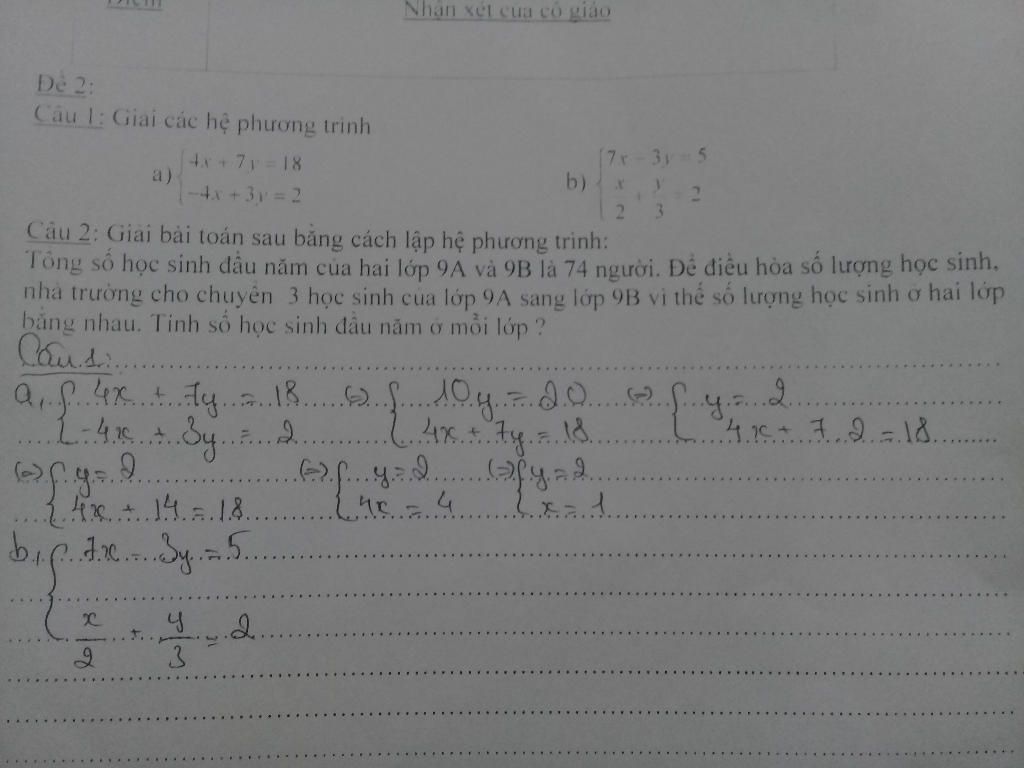 Điểm
Nhận xét của cô giáo
Đề 2:
Câu 1: Giải các hệ phương trình
a) { 4x + 7y = 18
-4x + 3y = 2
b) { 7x - 3y = 5
x/2 + y/3 = 2
Câu 2: Giải bài toán sau bằng cách lập hệ phương trình:
Tổng số học sinh đầu năm của hai lớp 9A và 9B là 74 người. Để điều hòa số lượng học sinh,
nhà trường cho chuyển 3 học sinh của lớp 9A sang lớp 9B vì thế số lượng học sinh ở hai lớp
bằng nhau. Tính số học sinh đầu năm ở mỗi lớp ?
Câu 1:
a, { 4x + 7y = 18 (=) { 10y = 20 (=) { y = 2
-4x + 3y = 2 4x + 7y = 18 4x + 7.2 = 18
(=) { y = 2 (=) { y = 2 (=) { y = 2
4x + 14 = 18 4x = 4 x = 1
b, { 7x - 3y = 5
x/2 + y/3 = 2